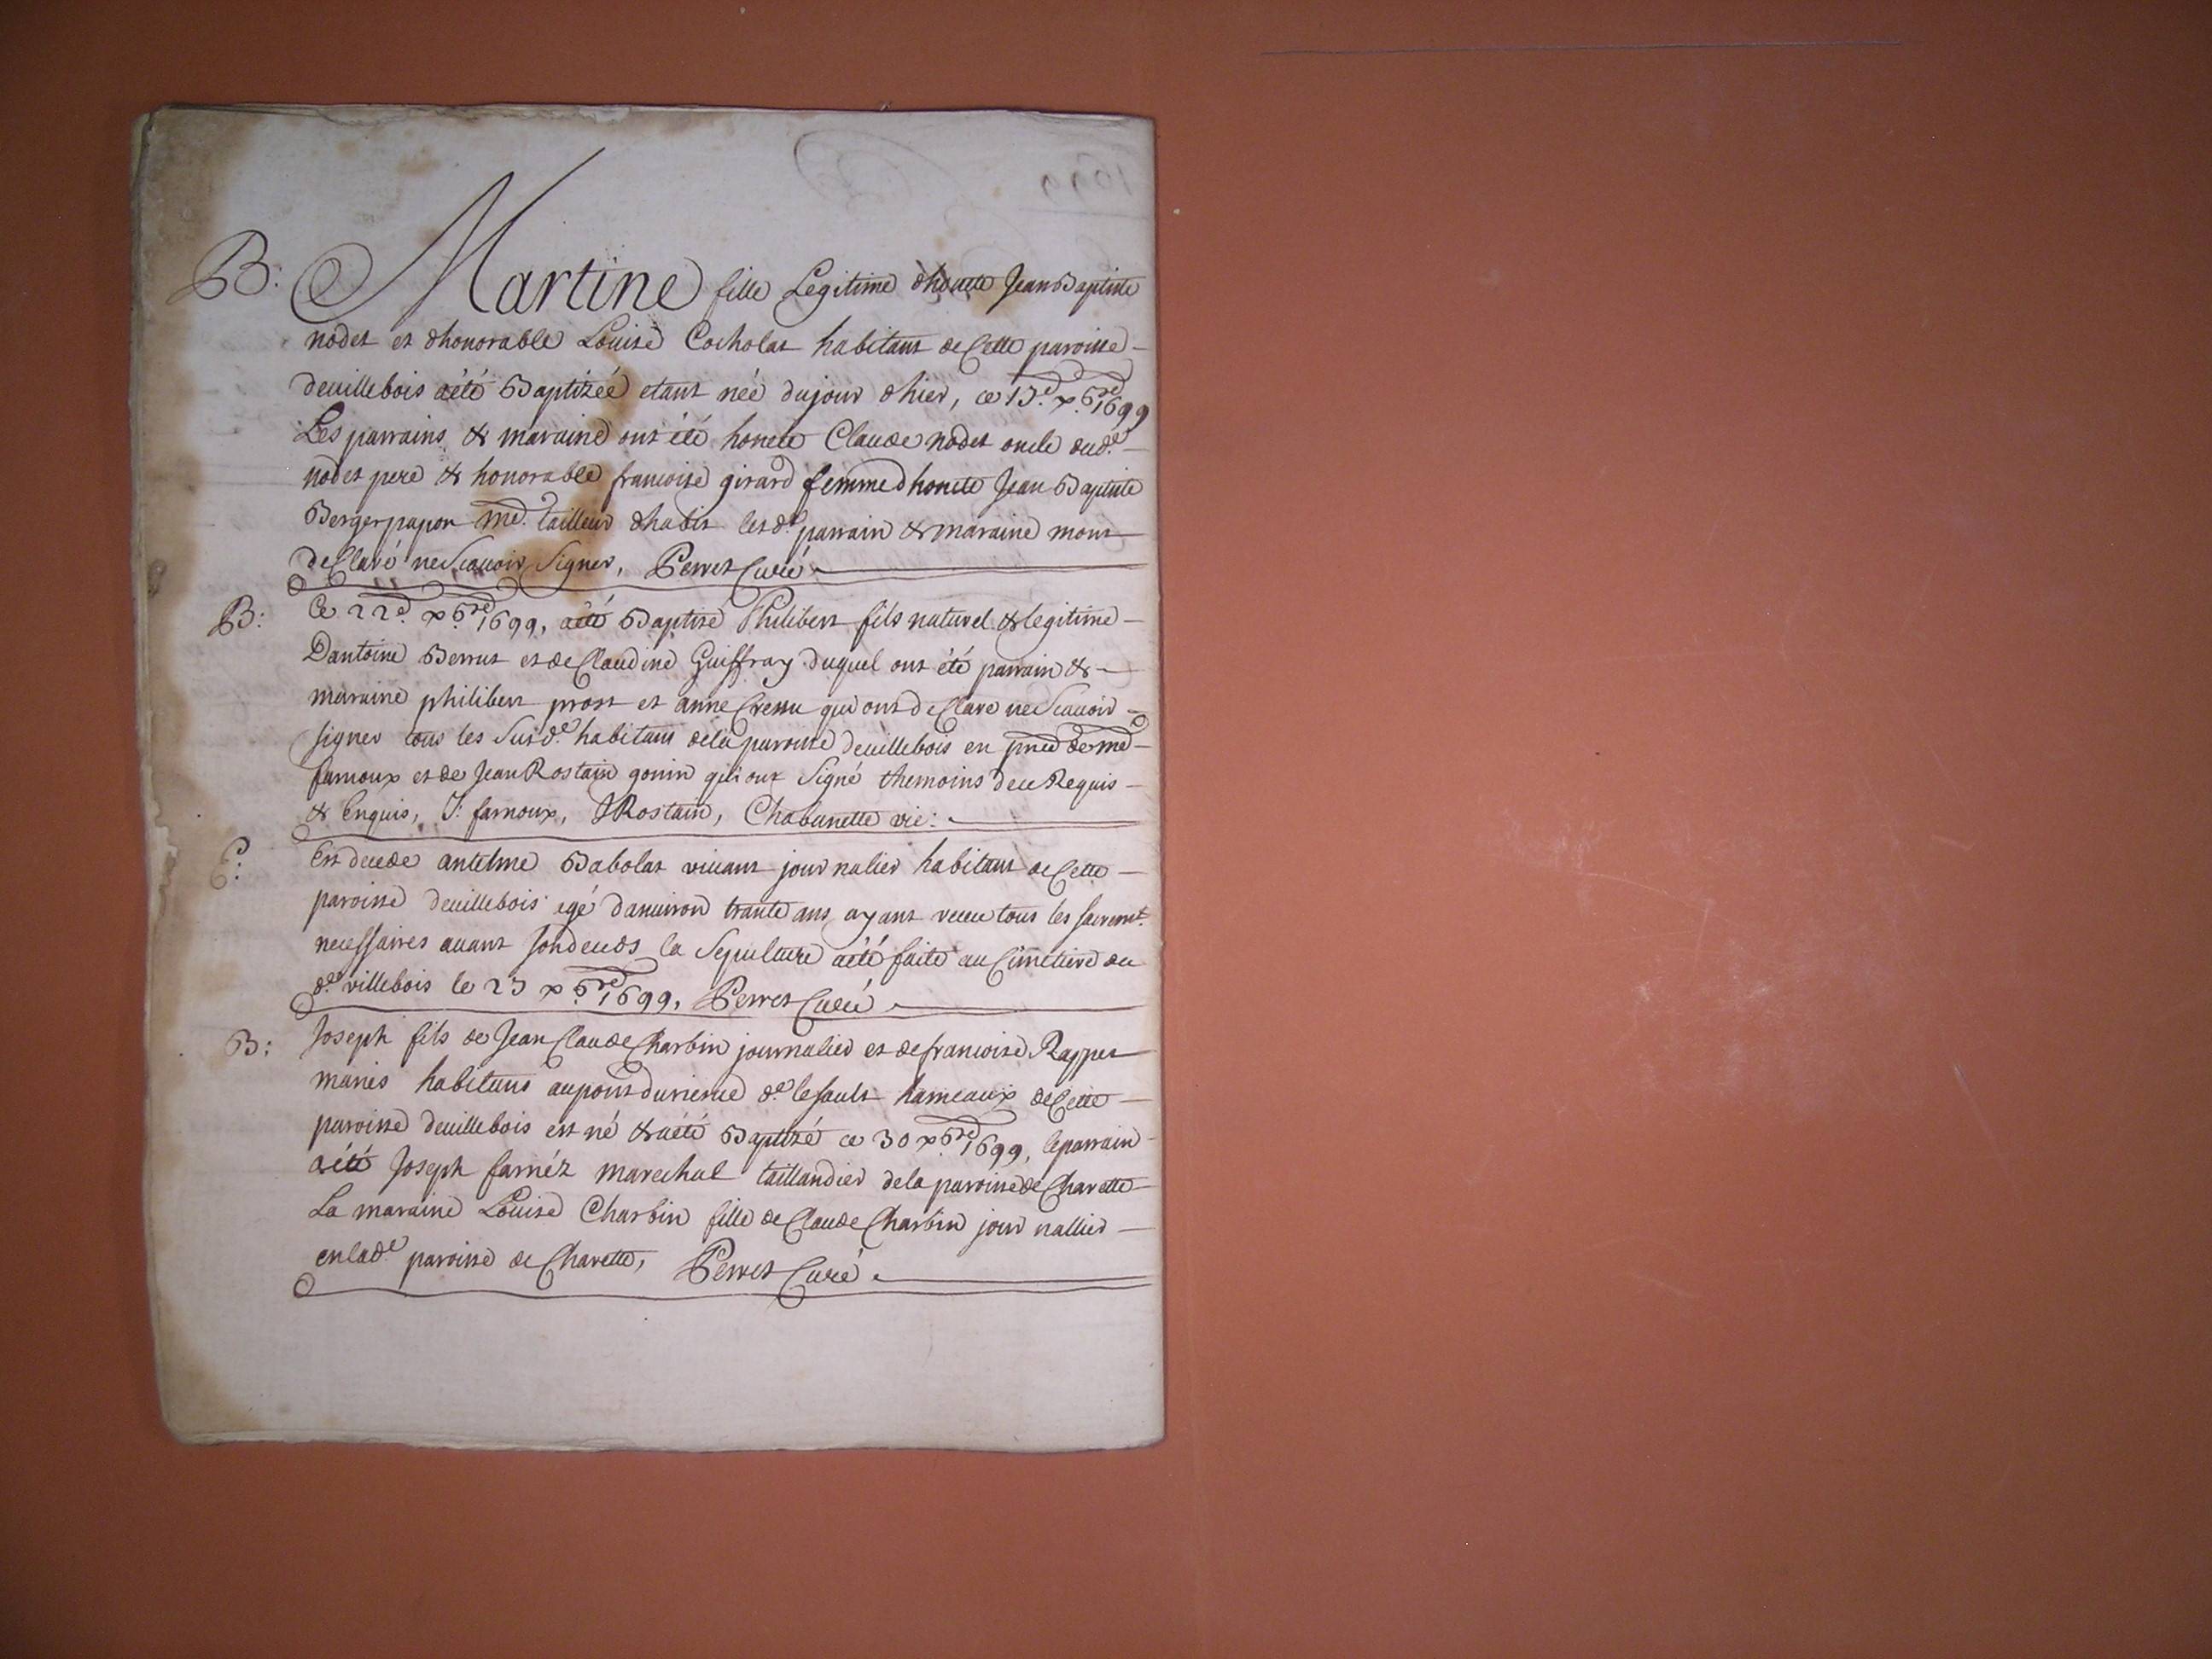 B: Martine fille Legitime dhonete Jean Baptiste
nodet et dhonorable Louise Cocholat habitant de Cette paroisse
deuillebois aété Baptizéé etant néé dujour dhier, ce 13e xbre 1699
Les parrains & maraine ont été honete Claude nodet oncle dude
nodet pere & honorable francoise girard femme dhonete Jean Baptiste
Berger papon md tailleur dhabit lesde parrain & maraine mont
de Claré ne Scauoir Signer, Perret Curé
B: Ce 22e xbre 1699, aété Baptisé Philibert fils naturel & legitime
Dantoine Berrut et de Claudine Guiffray duquel ont été parrain &
maraine philibert prost et anne Cressu qui ont de Claré ne Scauoir
signer tous les Susde habitans dela paroisse deuillebois en pnce de me
farnoux et de Jean Rostain gonin qui ont Signé themoins dece Requis
& Enquis, J: farnoux, JRostain, Chabanette vic:
E: Est decede antelme Babolat viuant journalier habitant de Cette
paroisse deuillebois egé danuiron trante ans ayant receu tous les sacremts
necessaires auant sondeceds la Sepulture aété faite au Cimetiere du
de villebois le 23 xbre 1699, Perret Curé
B: Joseph fils de Jean Claude Charbin journalier et de francoise Rappet
mariés habitans aupont de le sault hameaux de Cette
paroisse deuillebois est né & aété Baptizé ce 30 xbre 1699, leparrain
aété Joseph farnéz marechal taillandier dela paroisse de Charette
La maraine Louise Charbin fille de Claude Charbin jour nallier
enlade paroisse de Charette, Perret Curé